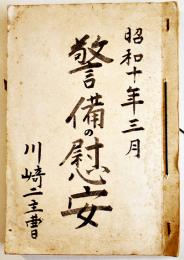 昭和十年三月
警備の慰安
川崎二主曹